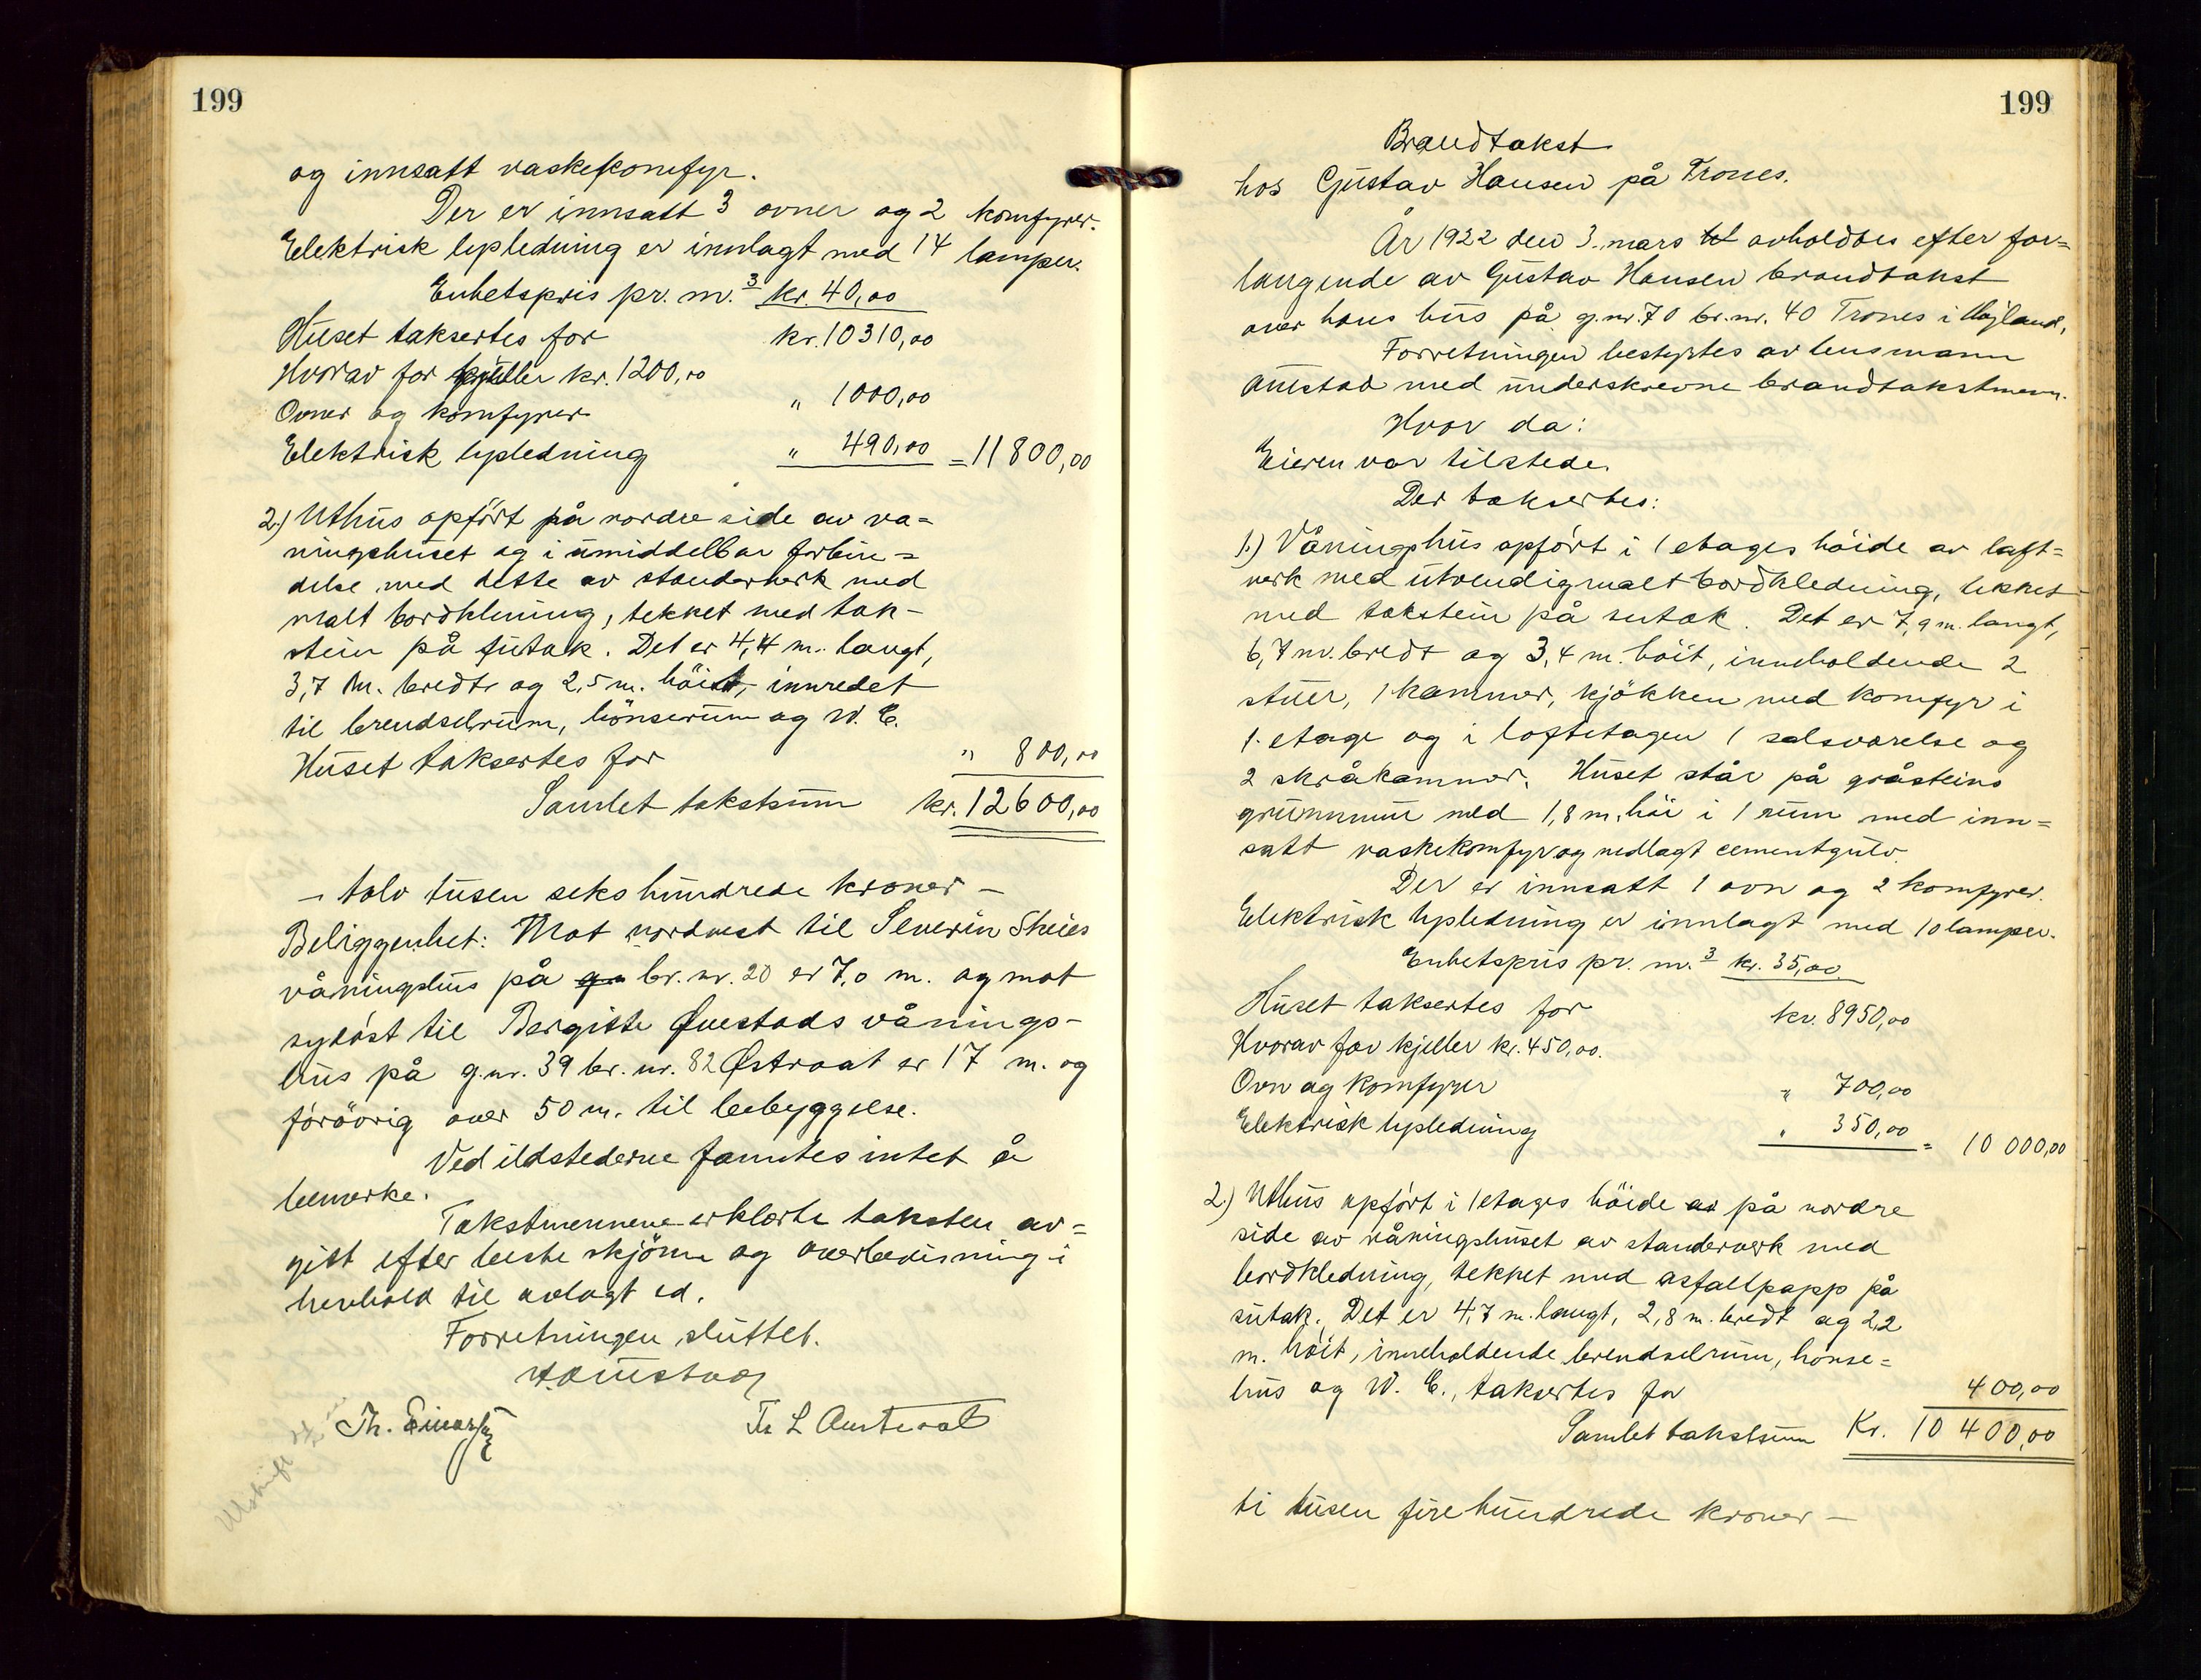 199
og innsatt vaskekomfyr.
Der er innsatt 3 ovner og 2 komfyrer.
Elektrisk lysledning er innlagt med 14 lamper.
Enhetspris pr. m.³ kr. 40,00
Huset taksertes for kr. 10310,00
Hvorav for kjeller kr. 1200,00
Ovner og komfyrer " 1000,00
Elektrisk lysledning " 490,00 = 11800,00
2.) Uthus opført på nordre side av va-
ningshuset og i umiddelbar forbin-
delse med dette av standerverk med
malt bordkledning, tekket med tak-
stein på sutak. Det er 4,4 m. langt,
3,7 m. bredt og 2,5 m. höit, innredet
til brendselrum, hönserum og W. C.
Huset taksertes for " 800,00
Samlet takstsum kr. 12600,00
- tolv tusen seks hundrede kroner -
Beliggenhet: Mot nordvest til Severin Skeies
våningshus på br. nr. 20 er 7,0 m. og mot
sydöst til Bergitte Øvestads vånings-
hus på g.nr. 39 br. nr. 82 Østraat er 17 m. og
forövrig over 50 m. til bebyggelse.
Ved ildstederne fanntes intet å
bemerke.
Takstmennene erklærte taksten av-
gitt efter beste skjönn og overbevisning i
henhold til avlagt ed.
Forretningen sluttet.
H. Aunstad
Th. Einarsen
L Austvoll
Utskrift
199
Brandtakst
hos Gustav Hansen på Trones.
År 1922 den 3. mars avholdtes efter for-
langende av Gustav Hansen brandtakst
over hans hus på g.nr. 70 br.nr. 40 Trones i Höjland.
Forretningen bestyrtes av lensmann
Aunstad med underskrevne brandtakstmenn.
Hvor da:
Eieren var tilstede.
Der taksertes:
1.) Våningshus opfört i 1 etages höide av laft-
verk med utvendig malt bordkledning, tekket
med takstein på sutak. Det er 7,9 m. langt,
6,7 m. bredt og 3,4 m. höit, inneholdende 2
stuer, 1 kammer, kjökken med komfyr i
1. etage og i loftetagen 1 salsværelse og
2 skråkammer. Huset står på gråsteins
grunnmur med 1,8 m. höi i 1 rum med inn-
satt vaskekomfyr og nedlagt cementgulv.
Der er innsatt 1 ovn og 2 komfyrer.
Elektrisk lysledning er innlagt med 10 lamper.
Enhetspris pr. m.³ kr. 35,00
Huset taksertes for kr. 8950,00
Hvorav for kjeller kr. 450,00.
Ovn og komfyrer " 700,00
Elektrisk lysledning " 350,00 = 10 000,00
2.) Uthus opfört i 1 etages höide av på nordre
side av våningshuset av standerverk med
bordkledning, tekket med asfaltpapp på
sutak. Det er 4,7 m. langt, 2,8 m. bredt og 2,2
m. höit, inneholdende brendselrum, hönse-
hus og W. C., taksertes for 400,00
Samlet takstsum Kr. 10 400,00
ti tusen fire hundrede kroner -